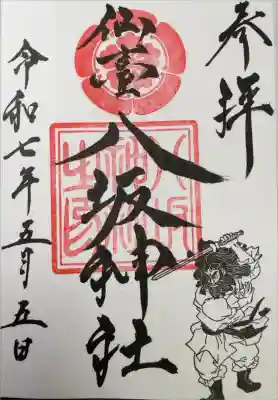 参拝
仙臺
八坂神社
八坂神社之印
令和七年五月五日